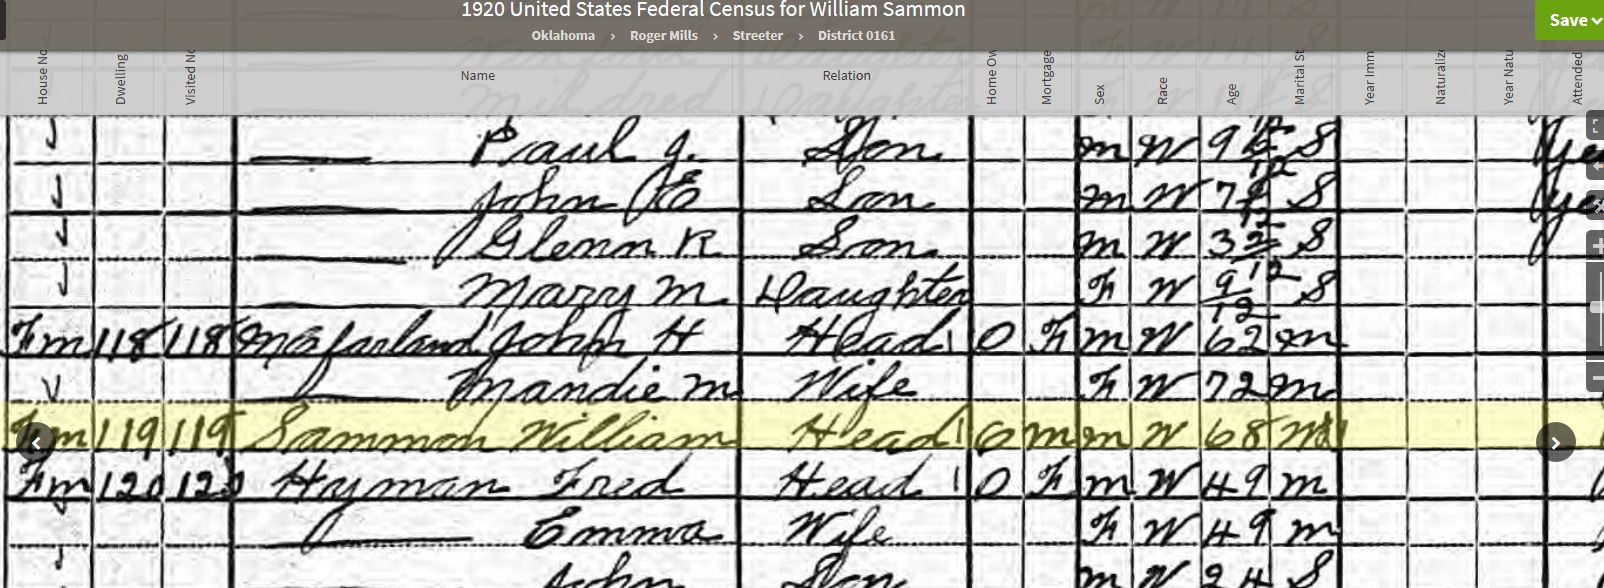 1920 United States Federal Census for William Sammon
Oklahoma › Roger Mills › Streeter › District 0161
Save
House No Dwelling Visited No Name Relation Home Ow Mortgage Sex Race Age Marital St Year Imm Naturaliz Year Natu Attended
Paul J. Son m W 9 S Yes
John E Son m W 7 S Yes
Glenn R Son m W 3 S
Mary M Daughter F W 9/12 S
Fm 118 118 McFarland John H Head 1 O F m W 62 m
Mandie M Wife F W 72 m
Fm 119 119 Sammon William Head 1 O m m W 68
Fm 120 120 Hyman Fred Head 1 O F m W 49 m
Emma Wife F W 49 m
John Son m W 24 S